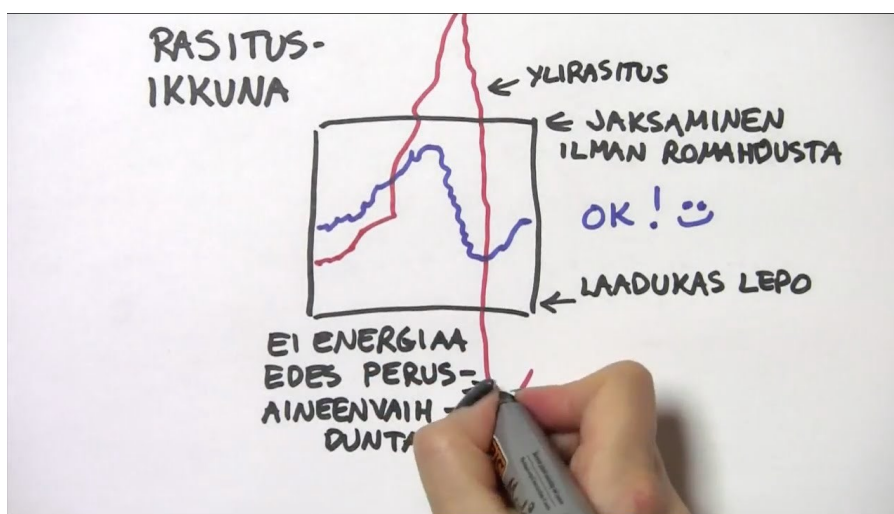 RASITUS-
IKKUNA
← YLIRASITUS
← JAKSAMINEN
ILMAN ROMAHDUSTA
OK! :)
← LAADUKAS LEPO
EI ENERGIAA
EDES PERUS-
AINEENVAIH-
DUNTA